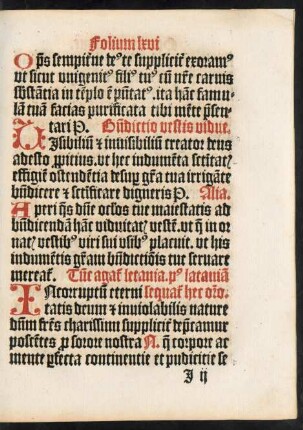 Folium lxvi
Oꝑs sempiterne deꝰ te supplices exoramꝰ
vt sicut vnigenitꝰ filiꝰ tuꝰ cū nr̄e carnis
sb̄stātia in tēplo ē pn̄tatꝰ. ita hāc famu⸗
lā tuā facias purificata tibi mēte p̄sen⸗
tari P. Bn̄dictio vestis vidue.
Uisibiliū ⁊ inuisibiliū creator deus
adesto ꝓpitius. vt hec indumēta
effigiē ostendētia desuꝑ gr̄a tua irrigāte
bn̄dicere ⁊ sctificare digneris P. Alia.
Aperi q̄s dn̄e oclos tue maiestatis ad
bn̄dicendā hāc viduitatꝭ vestē. vt q̄ in or
natꝭ vestibꝰ viri sui vsibꝰ placuit. vt his
indumētis gr̄am bn̄dictiōis tue seruare
mereat. Tūc agat letania. pꝰ letaniā
INcorruptū eterni sequat hec oro.
tatis deum ⁊ inuiolabilis nature
dūm fr̄es charissimi supplicit dep̄camur
poscētes ꝓ sorore nostra N. q̄ corpore ac
mente ꝑfecta continentie et pudicicie se
J ij